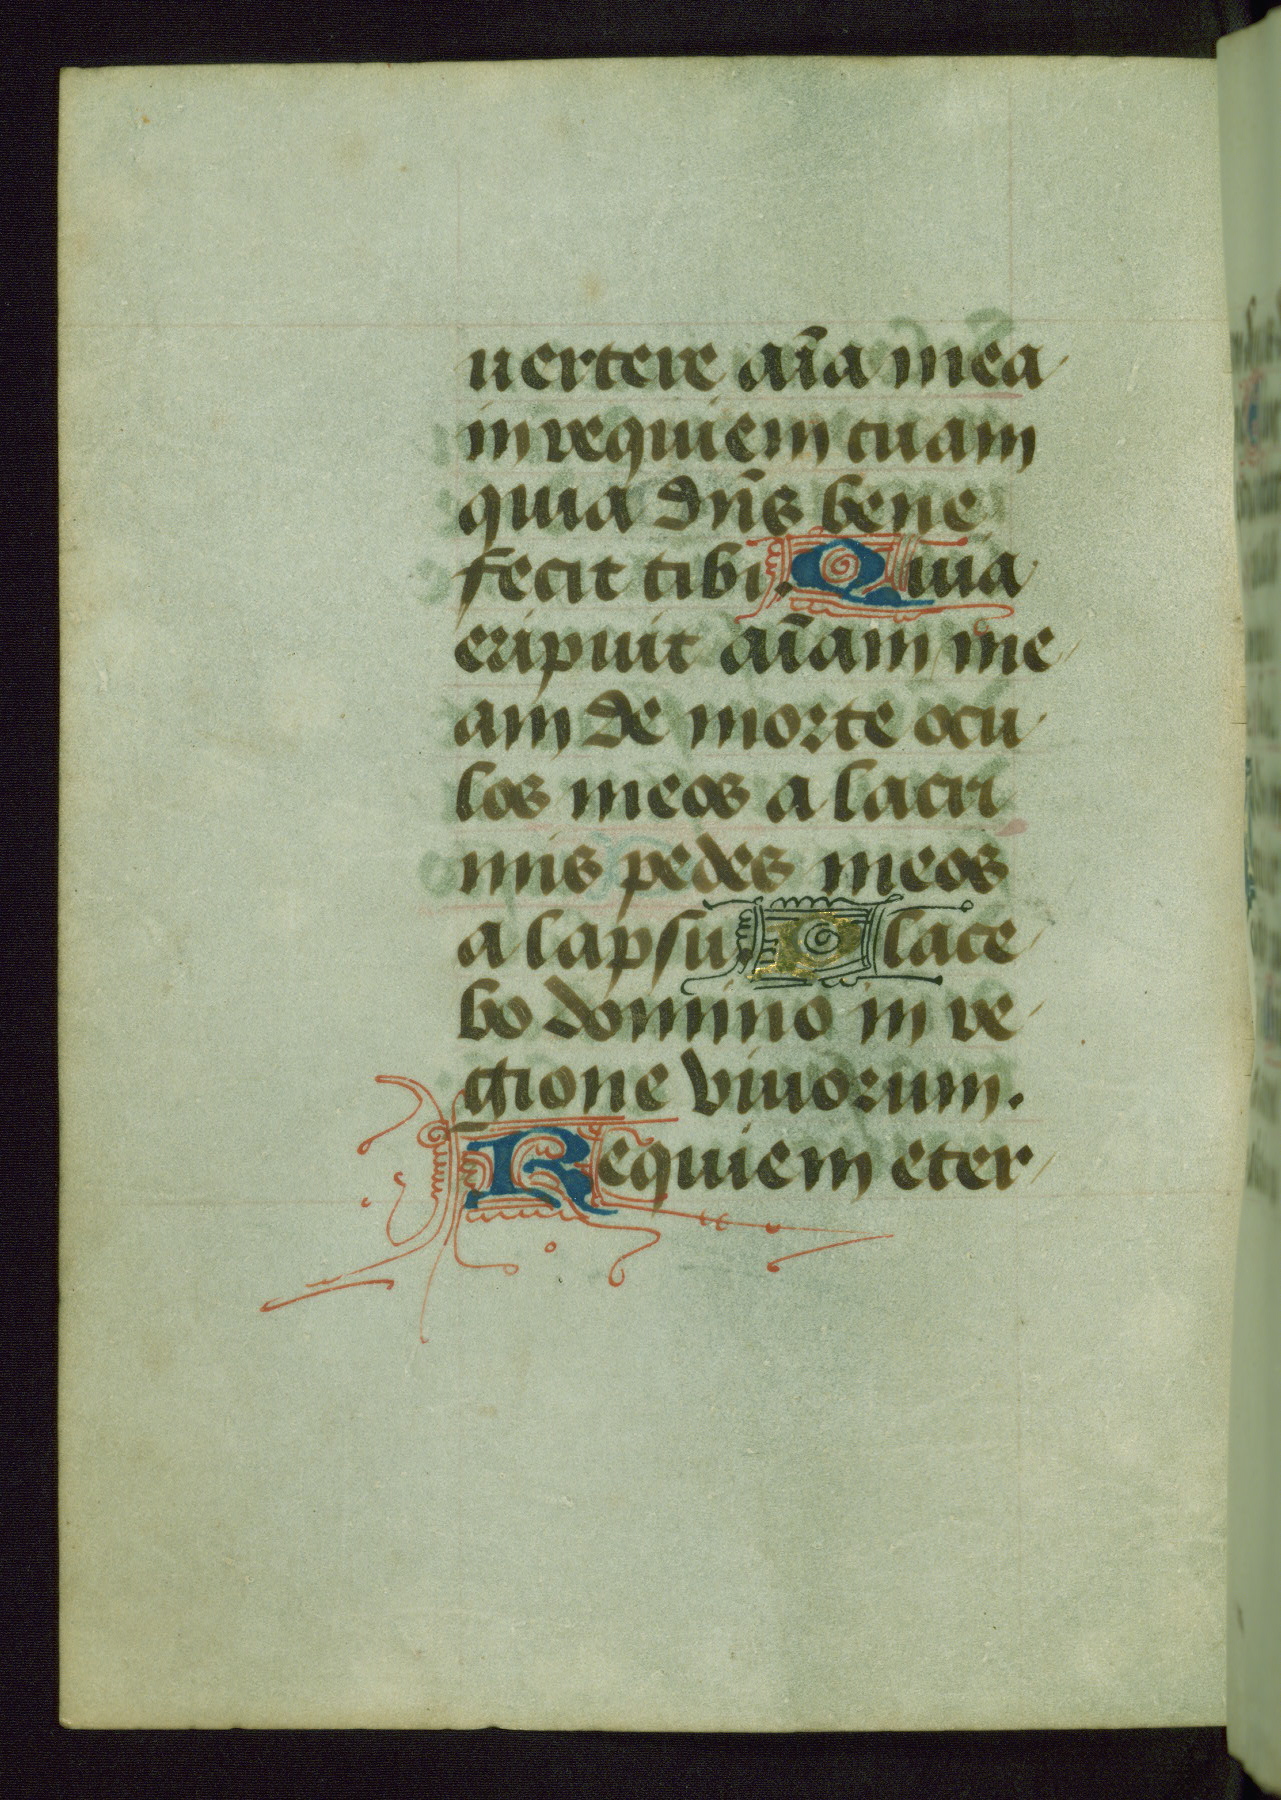 uertere aīa mea
in requiem tuam
quia dn̄s bene
fecit tibi. Quia
eripuit aīam me
am de morte ocu
los meos a lacri
mis pedes meos
a lapsu. Place
bo domino in re
gione viuorum.
Requiem eter